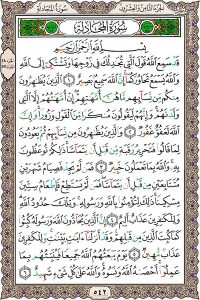 الجزء الثامن والعشرون
سورة المجادلة
سُورَةُ المُجَادلَةِ
بِسْمِ اللَّهِ الرَّحْمَٰنِ الرَّحِيمِ
قَدْ سَمِعَ اللَّهُ قَوْلَ الَّتِي تُجَادِلُكَ فِي زَوْجِهَا وَتَشْتَكِي إِلَى اللَّهِ
وَاللَّهُ يَسْمَعُ تَحَاوُرَكُمَا إِنَّ اللَّهَ سَمِيعٌ بَصِيرٌ ١ الَّذِينَ يُظَاهِرُونَ
مِنكُم مِّن نِّسَائِهِم مَّا هُنَّ أُمَّهَاتِهِمْ إِنْ أُمَّهَاتُهُمْ إِلَّا اللَّائِي
وَلَدْنَهُمْ وَإِنَّهُمْ لَيَقُولُونَ مُنكَرًا مِّنَ الْقَوْلِ وَزُورًا وَإِنَّ اللَّهَ
لَعَفُوٌّ غَفُورٌ ٢ وَالَّذِينَ يُظَاهِرُونَ مِن نِّسَائِهِمْ ثُمَّ يَعُودُونَ
لِمَا قَالُوا فَتَحْرِيرُ رَقَبَةٍ مِّن قَبْلِ أَن يَتَمَاسَّا ذَٰلِكُمْ تُوعَظُونَ بِهِ
وَاللَّهُ بِمَا تَعْمَلُونَ خَبِيرٌ ٣ فَمَن لَّمْ يَجِدْ فَصِيَامُ شَهْرَيْنِ
مُتَتَابِعَيْنِ مِن قَبْلِ أَن يَتَمَاسَّا فَمَن لَّمْ يَسْتَطِعْ فَإِطْعَامُ سِتِّينَ
مِسْكِينًا ذَٰلِكَ لِتُؤْمِنُوا بِاللَّهِ وَرَسُولِهِ وَتِلْكَ حُدُودُ اللَّهِ
وَلِلْكَافِرِينَ عَذَابٌ أَلِيمٌ ٤ إِنَّ الَّذِينَ يُحَادُّونَ اللَّهَ وَرَسُولَهُ كُبِتُوا
كَمَا كُبِتَ الَّذِينَ مِن قَبْلِهِمْ وَقَدْ أَنزَلْنَا آيَاتٍ بَيِّنَاتٍ وَلِلْكَافِرِينَ
عَذَابٌ مُّهِينٌ ٥ يَوْمَ يَبْعَثُهُمُ اللَّهُ جَمِيعًا فَيُنَبِّئُهُم بِمَا
عَمِلُوا أَحْصَاهُ اللَّهُ وَنَسُوهُ وَاللَّهُ عَلَىٰ كُلِّ شَيْءٍ شَهِيدٌ ٦
٥٤٢